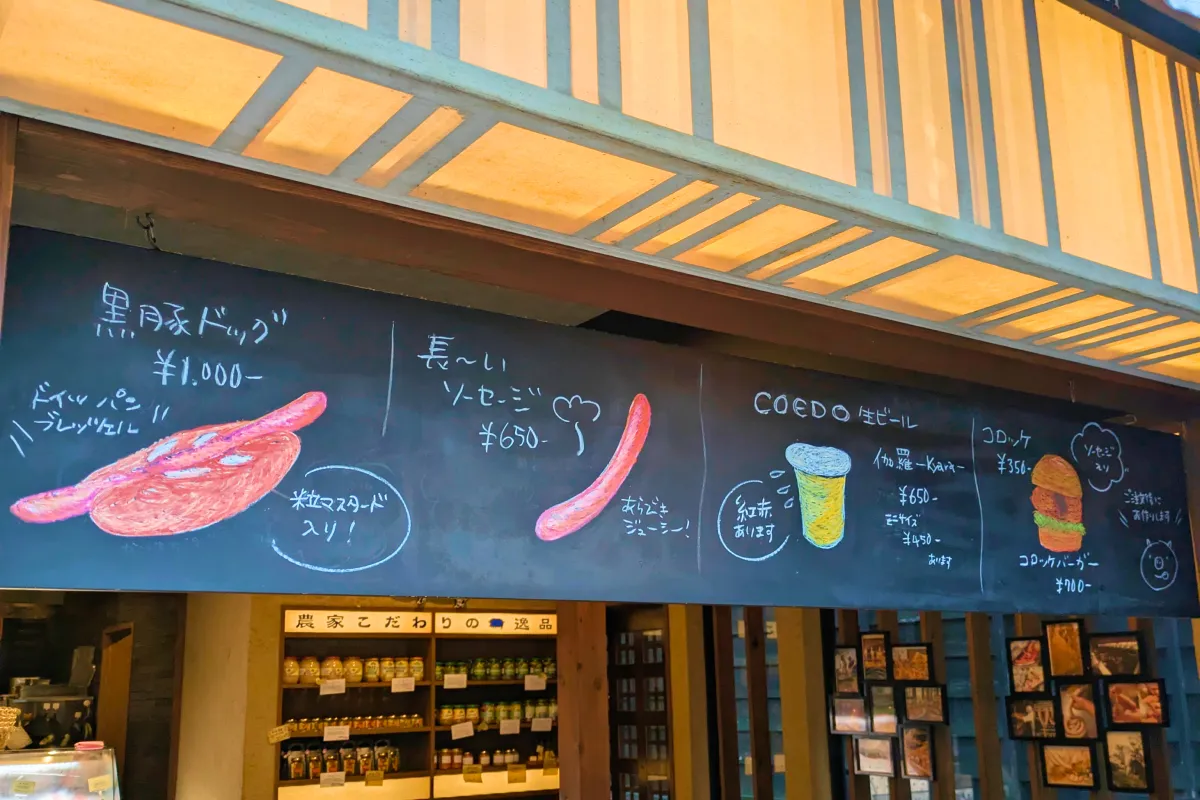 黒豚ドッグ
¥1.000-
ドイツパン
ブレッツェル
粒マスタード
入り!
長〜い
ソーセージ
¥650-
あらびき
ジューシー!
COEDO 生ビール
紅赤
あります
伽羅-Kyara-
¥650-
ミニサイズ
¥450-
あります
コロッケ
¥350-
ソーセージ
入り
ご注文後に
お作りします
コロッケバーガー
¥700-
農家こだわりの逸品